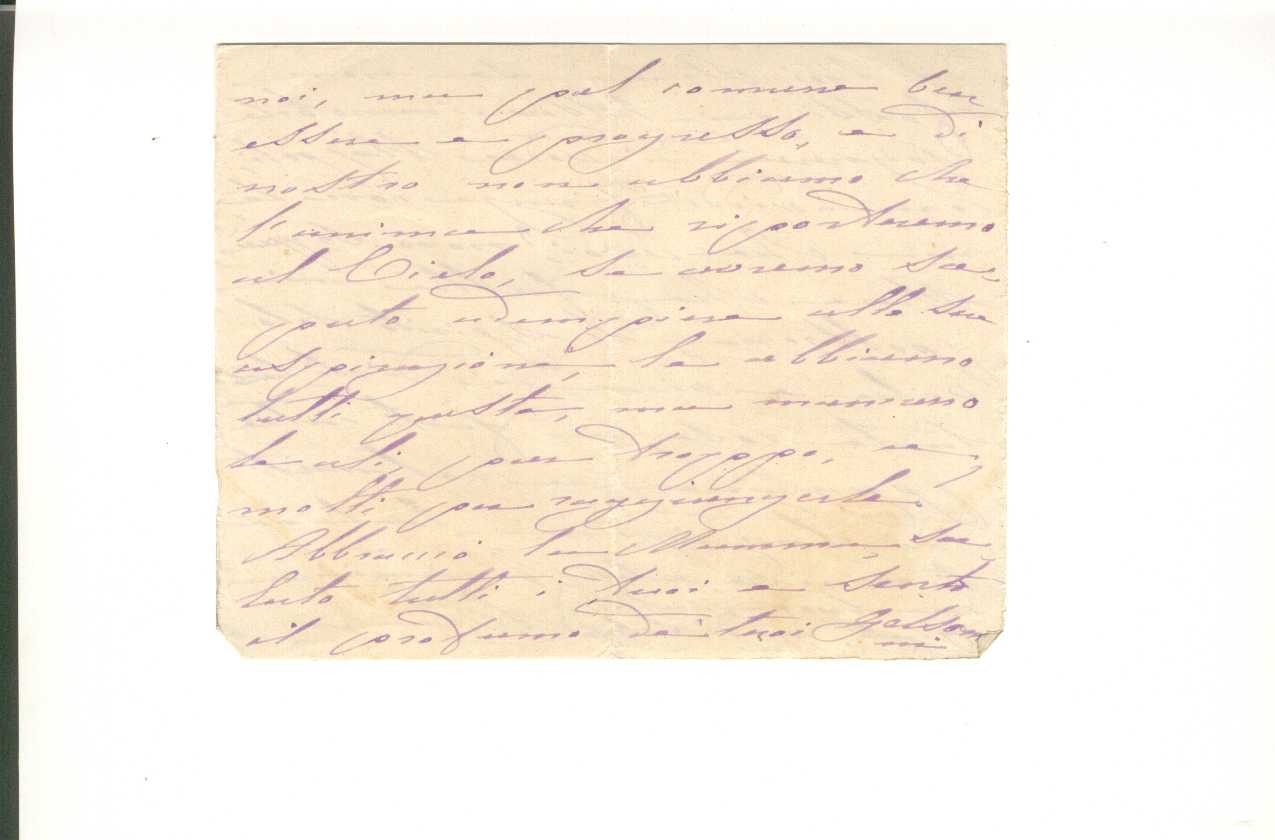 noi, ma pel comune ben
essere e progresso, e di
nostro non abbiamo che
l'anima che riporteremo
al Cielo, se avremo sa,
puto adempiere alla sua
aspirazione, la abbiamo
tutti questa, ma mancano
le ali, pur troppo, a,
molti per raggiungerla.
Abbraccio la Mamma, sa,
luto tutti i tuoi e sento
il profumo de' tuoi Gelsomi
ni